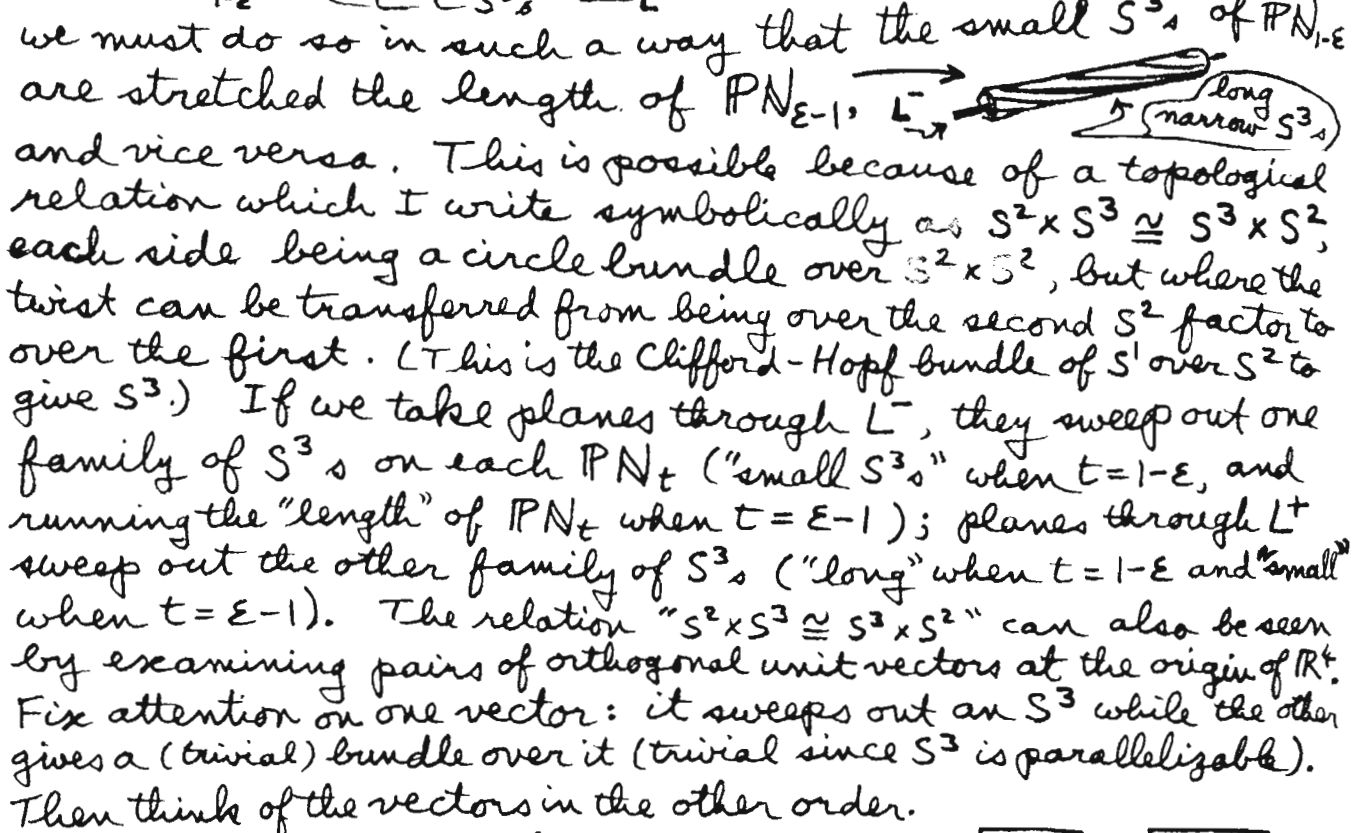 we must do so in such a way that the small S³s of ℙN₁₋ε
are stretched the length of ℙNε₋₁, L⁻ long
narrow S³s
and vice versa. This is possible because of a topological
relation which I write symbolically as S²×S³ ≅ S³×S²,
each side being a circle bundle over S²×S², but where the
twist can be transferred from being over the second S² factor to
over the first. (This is the Clifford-Hopf bundle of S¹ over S² to
give S³.) If we take planes through L⁻, they sweep out one
family of S³s on each ℙNt ("small S³s" when t=1-ε, and
running the "length" of ℙNt when t=ε-1); planes through L⁺
sweep out the other family of S³s ("long" when t=1-ε and "small"
when t=ε-1). The relation "S²×S³ ≅ S³×S²" can also be seen
by examining pairs of orthogonal unit vectors at the origin of ℝ⁴.
Fix attention on one vector: it sweeps out an S³ while the other
gives a (trivial) bundle over it (trivial since S³ is parallelizable).
Then think of the vectors in the other order.